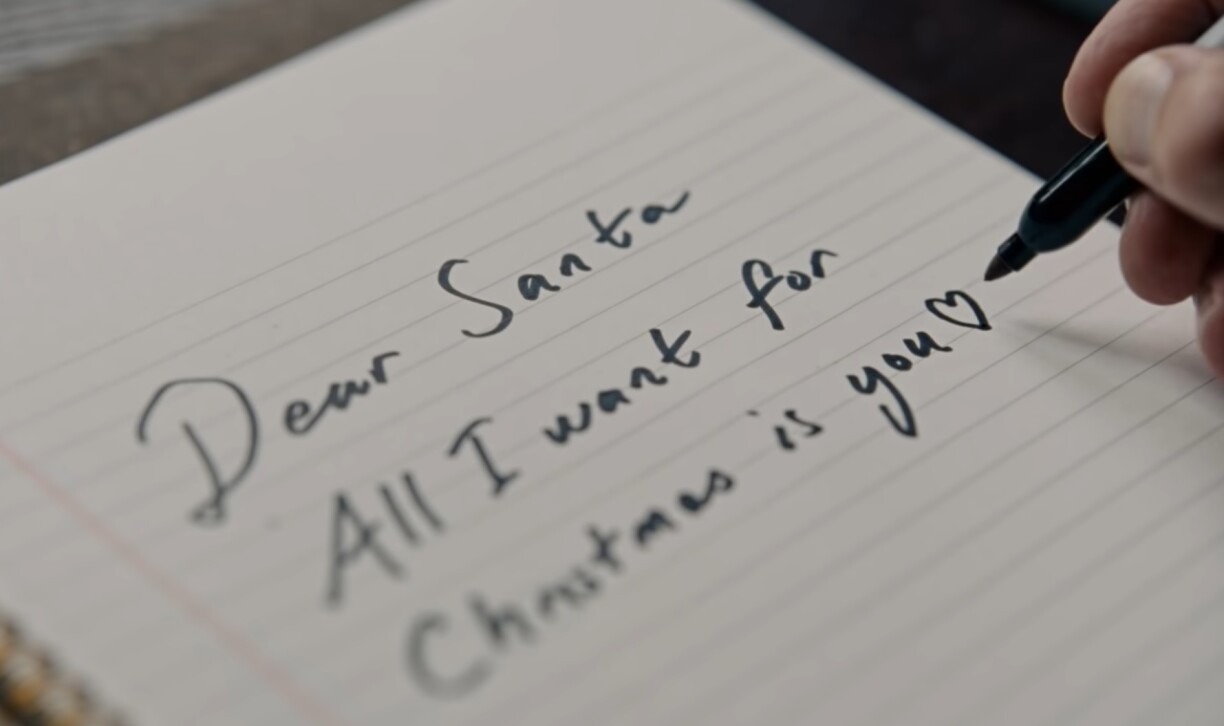 Dear Santa
All I want for
Christmas is you♡